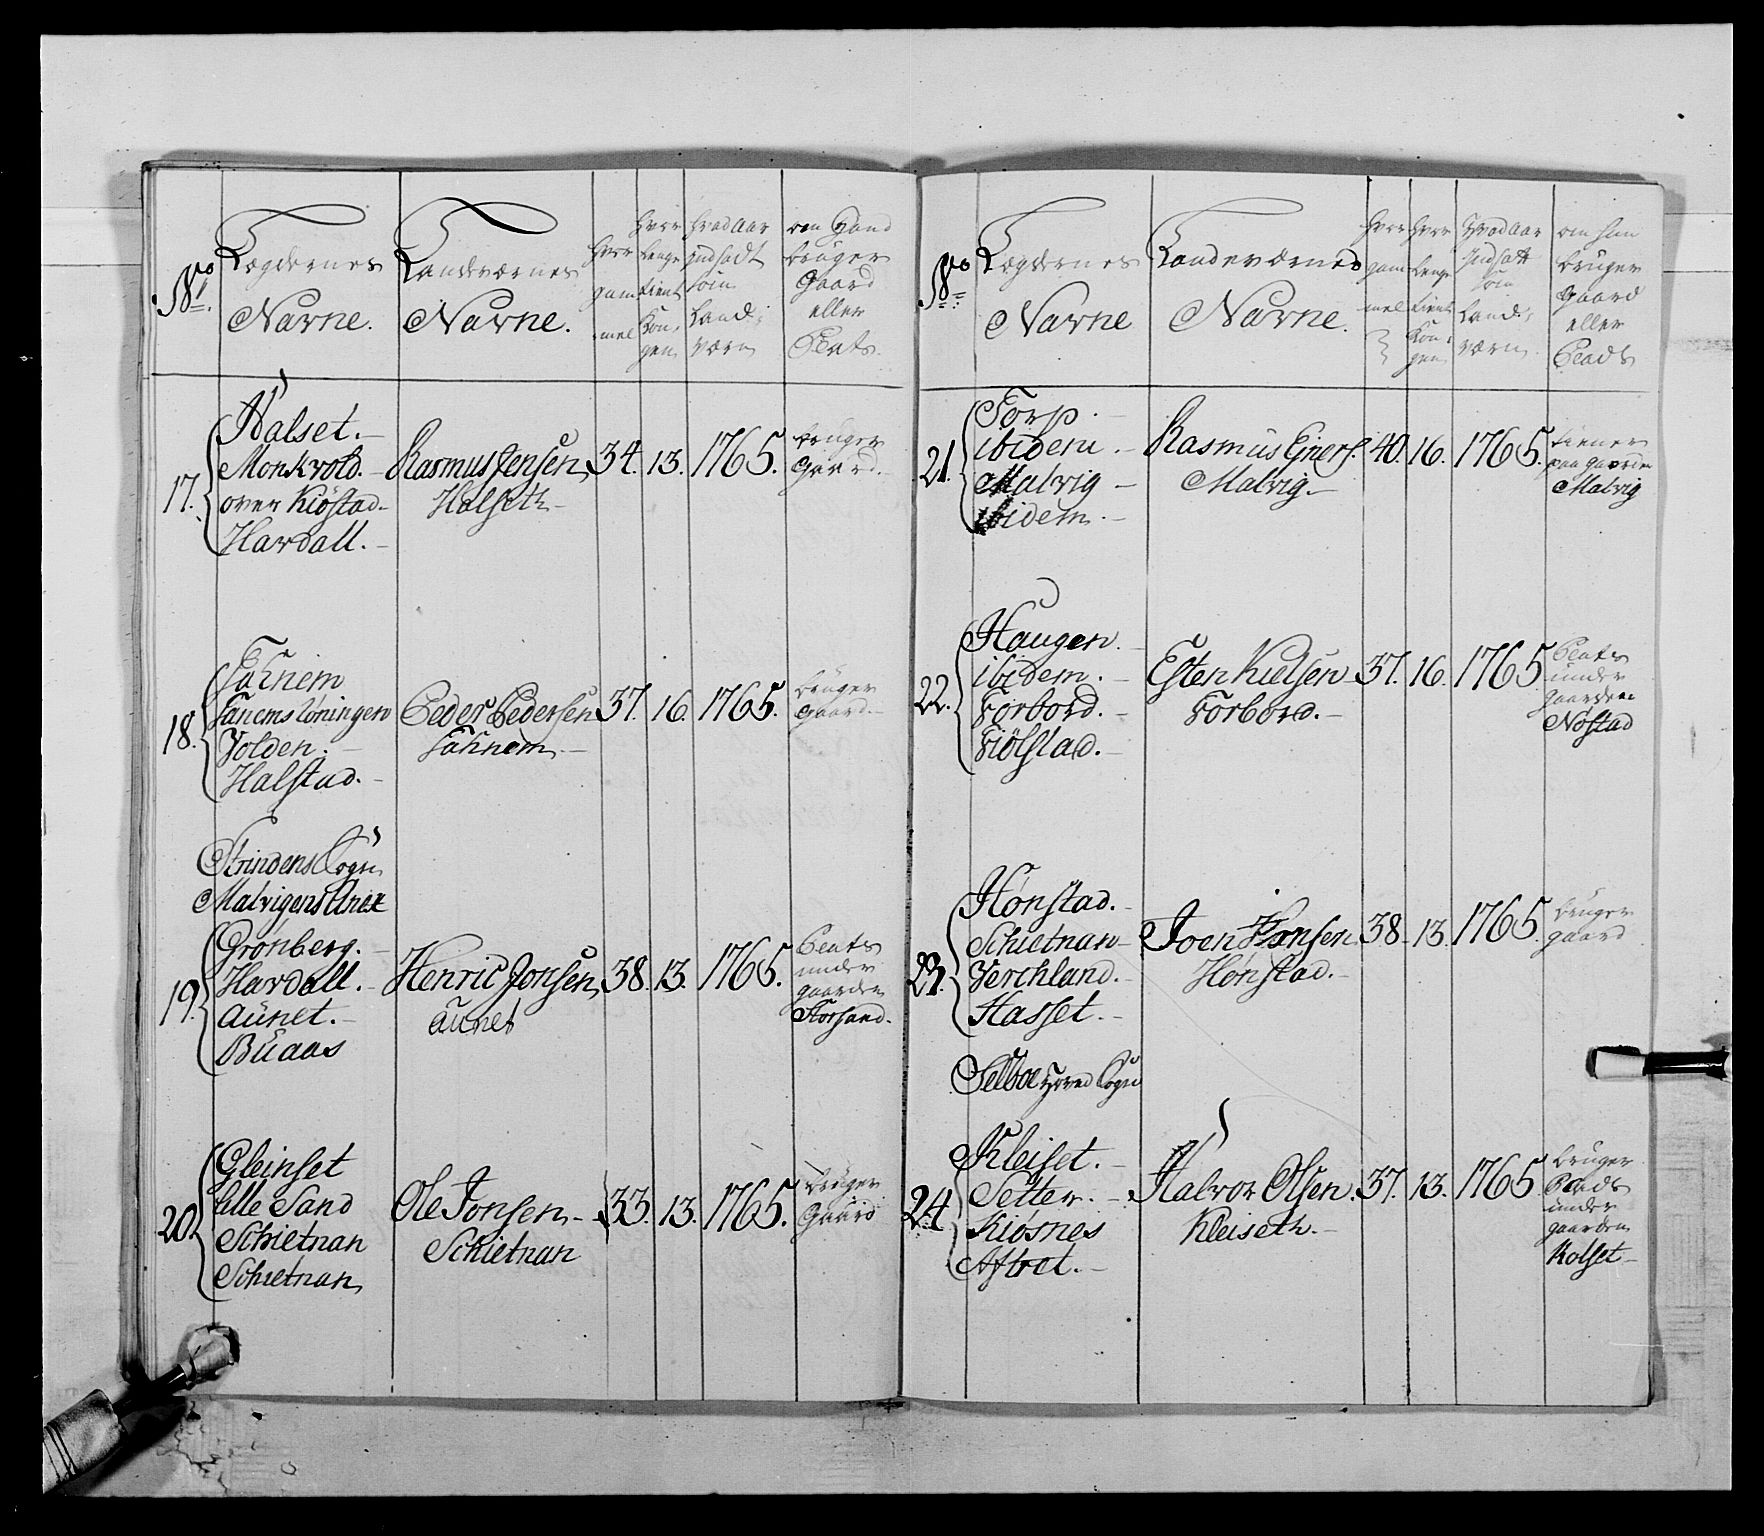 No.
Lægdernes
Navne.
Landværnes
Navne.
hvor
gam
mel
hvor
Lenge
tient
Kon,
gen
hvad aar
indsadt
som
Land,
værn
om Hand
bruger
Gaard
eller
Plats.
17.
Halset.
Monkvold.
over Kiöstad
Hardall.
Rasmus Jensen
Halseth
34.
13.
1765.
bruger
Gaard.
18.
Fahnem
Fanems Loningen
Volden.
Halstad.
Peder Pedersen
Fahnem
37.
16.
1765.
bruger
Gaard.
Strindens Sogn
Malvigens Anex
19.
Grønberg.
Hardall.
Aunet.
Buaas
Henric Jonsen
Aunet
38.
13.
1765.
Plats
under
gaarden
Storsand.
20.
Gleinset
Lille Sand
Schietnan
Schietnan
Ole Jonsen
Schietnan
33.
13.
1765.
bruger
Gaard
No.
Lægdernes
Navne
Landeværnes
Navne.
hvor
gam
mel
hvor
Lenge
tient
Kon,
gen
Hvad aar
Indsatt
som
Land,
værn
om han
bruger
Gaard
eller
Plads
21.
Torp.
ibidem.
Malvig
ibidem.
Rasmus Ejners.
Malvig.
40.
16.
1765.
tiener
paa gaarden
Malvig
22.
Haugen.
ibidem.
Forbord.
Fiölstad.
Esten Kielsen
Forbord.
37.
16.
1765
Plats
under
gaarden
Nostad
23.
Hønstad.
Schietnan
Verchland.
Hasset.
Joen Hansen
Hønstad.
38.
13.
1765.
bruger
gaard
Selboe Hoved Sogn
24
Kleiset.
Setter.
Kiosnes
Aftret.
Halvor Olsen.
Kleiseth.
37.
13.
1765
bruger
Plads
under
gaarden
Kolset